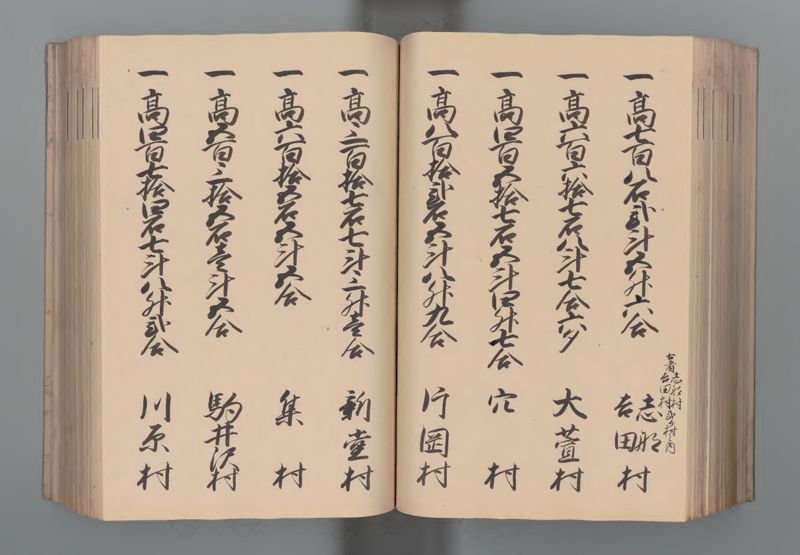 古者志那村
吉田村弐ヶ村
一高七百八石弐斗五升六合 志那
吉田村
一高六百六拾七石八斗七合六夕 大萱村
一高四百五拾七石五斗四升七合 穴村
一高八百拾弐石五斗八升九合 片岡村
一高三百拾七石七斗三升壱合 新堂村
一高六百拾五石五斗五合 集村
一高五百三拾五石壱斗五合 駒井沢村
一高四百七拾四石七斗八升弐合 川原村